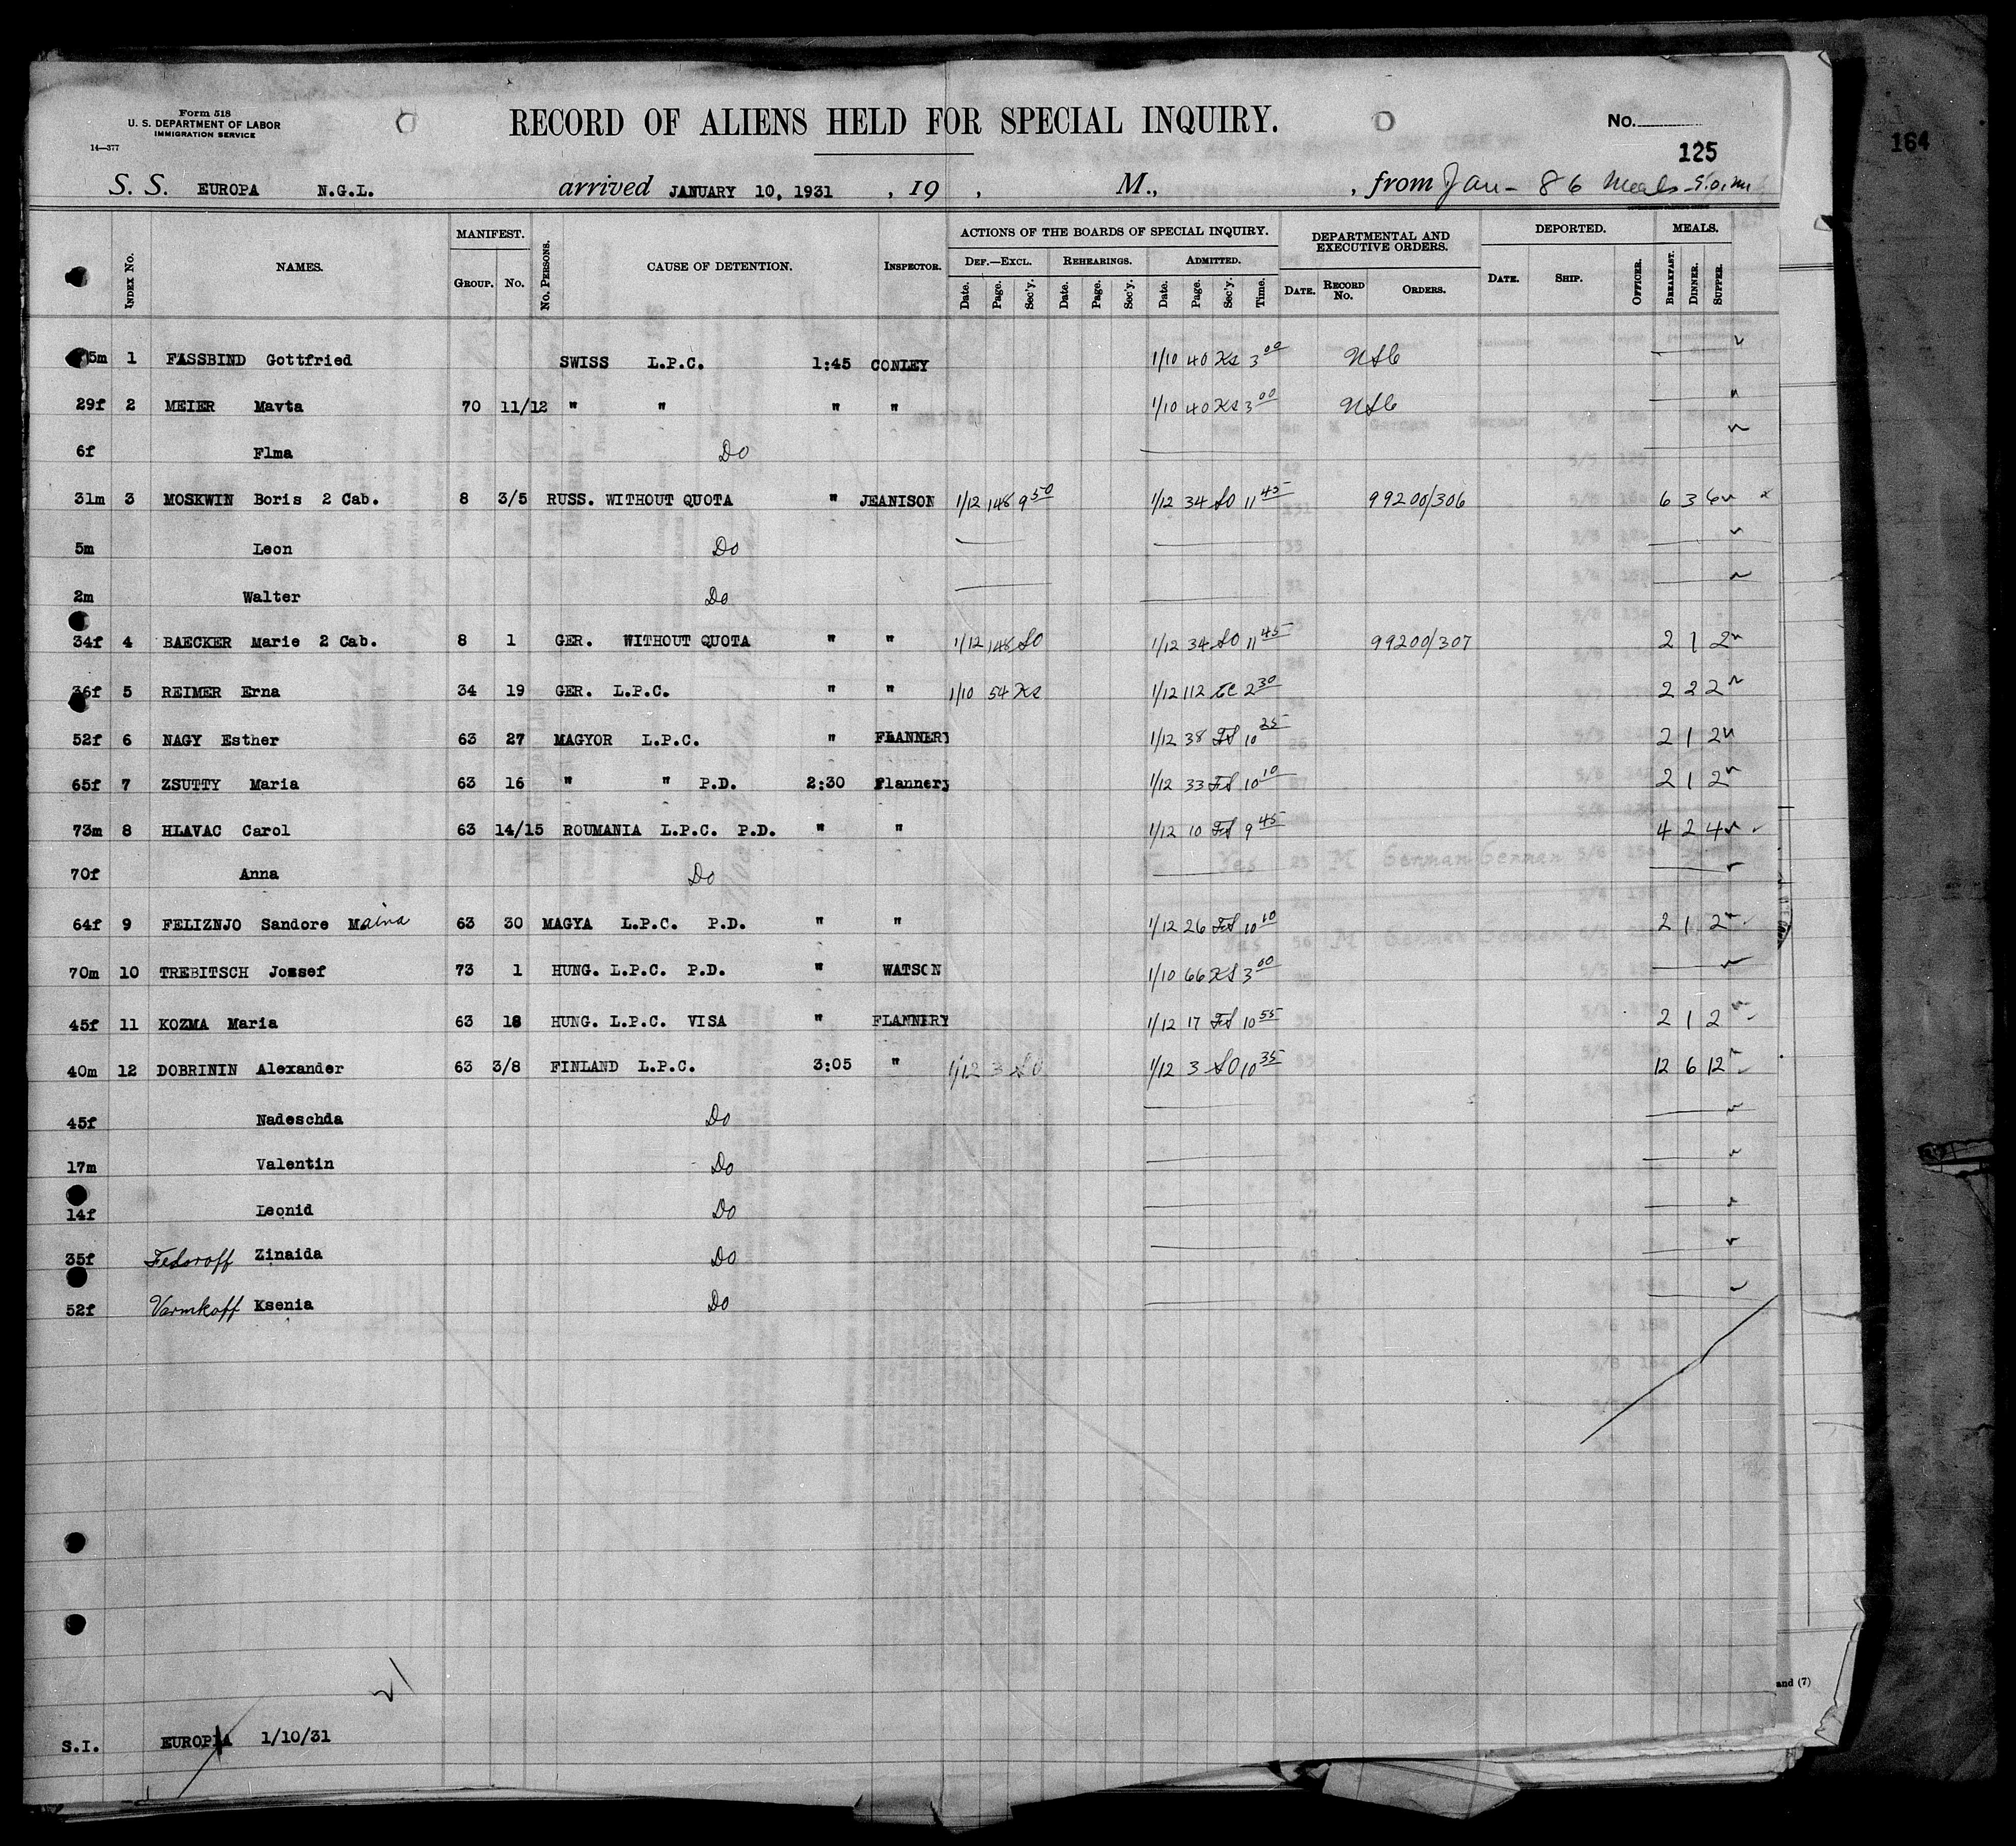 Form 518
U. S. DEPARTMENT OF LABOR
IMMIGRATION SERVICE
14—377
RECORD OF ALIENS HELD FOR SPECIAL INQUIRY.
No.
125
164
S. S. EUROPA N.G.L. arrived JANUARY 10, 1931 , 19 , M., , from Jan - 86 Meals
INDEX No. NAMES. MANIFEST. GROUP. No. No. PERSONS. CAUSE OF DETENTION. INSPECTOR. ACTIONS OF THE BOARDS OF SPECIAL INQUIRY. DEF.—EXCL. REHEARINGS. ADMITTED. DEPARTMENTAL AND EXECUTIVE ORDERS. DEPORTED. MEALS.
Date. Page. Sec'y. Date. Page. Sec'y. Date. Page. Sec'y. Time. DATE. RECORD No. ORDERS. DATE. SHIP. OFFICER. BREAKFAST. DINNER. SUPPER.
5m 1 FASSBIND Gottfried SWISS L.P.C. 1:45 CONLEY 1/10 40 Ks 3 00
29f 2 MEIER Mavta 70 11/12 " " " " 1/10 40 Ks 3 00
6f Flma Do
31m 3 MOSKWIN Boris 2 Cab. 8 3/5 RUSS. WITHOUT QUOTA " JEANISON 1/12 148 9 50 1/12 34 SO 11 45 99200/306 6 3 6
5m Leon Do
2m Walter Do
34f 4 BAECKER Marie 2 Cab. 8 1 GER. WITHOUT QUOTA " " 1/12 148 SO 1/12 34 SO 11 45 99200/307 2 1 2
36f 5 REIMER Erna 34 19 GER. L.P.C. " " 1/10 54 Ks 1/12 112 2 30 2 2 2
52f 6 NAGY Esther 63 27 MAGYOR L.P.C. " FLANNERY 1/12 38 FS 10 25 2 1 2
65f 7 ZSUTTY Maria 63 16 " " P.D. 2:30 Flannery 1/12 33 FS 10 10 2 1 2
73m 8 HLAVAC Carol 63 14/15 ROUMANIA L.P.C. P.D. " " 1/12 10 FS 9 45 4 2 4
70f Anna Do
64f 9 FELIZNJO Sandore Maina 63 30 MAGYA L.P.C. P.D. " " 1/12 26 FS 10 10 2 1 2
70m 10 TREBITSCH Jossef 73 1 HUNG. L.P.C. P.D. " WATSON 1/10 66 KS 3 00
45f 11 KOZMA Maria 63 18 HUNG. L.P.C. VISA " FLANNERY 1/12 17 FS 10 55 2 1 2
40m 12 DOBRININ Alexander 63 3/8 FINLAND L.P.C. 3:05 " 1/12 3 SO 1/12 3 SO 10 35 12 6 12
45f Nadeschda Do
17m Valentin Do
14f Leonid Do
35f Fedoroff Zinaida Do
52f Varmkoff Ksenia Do
and (7)
S.I. EUROPA 1/10/31